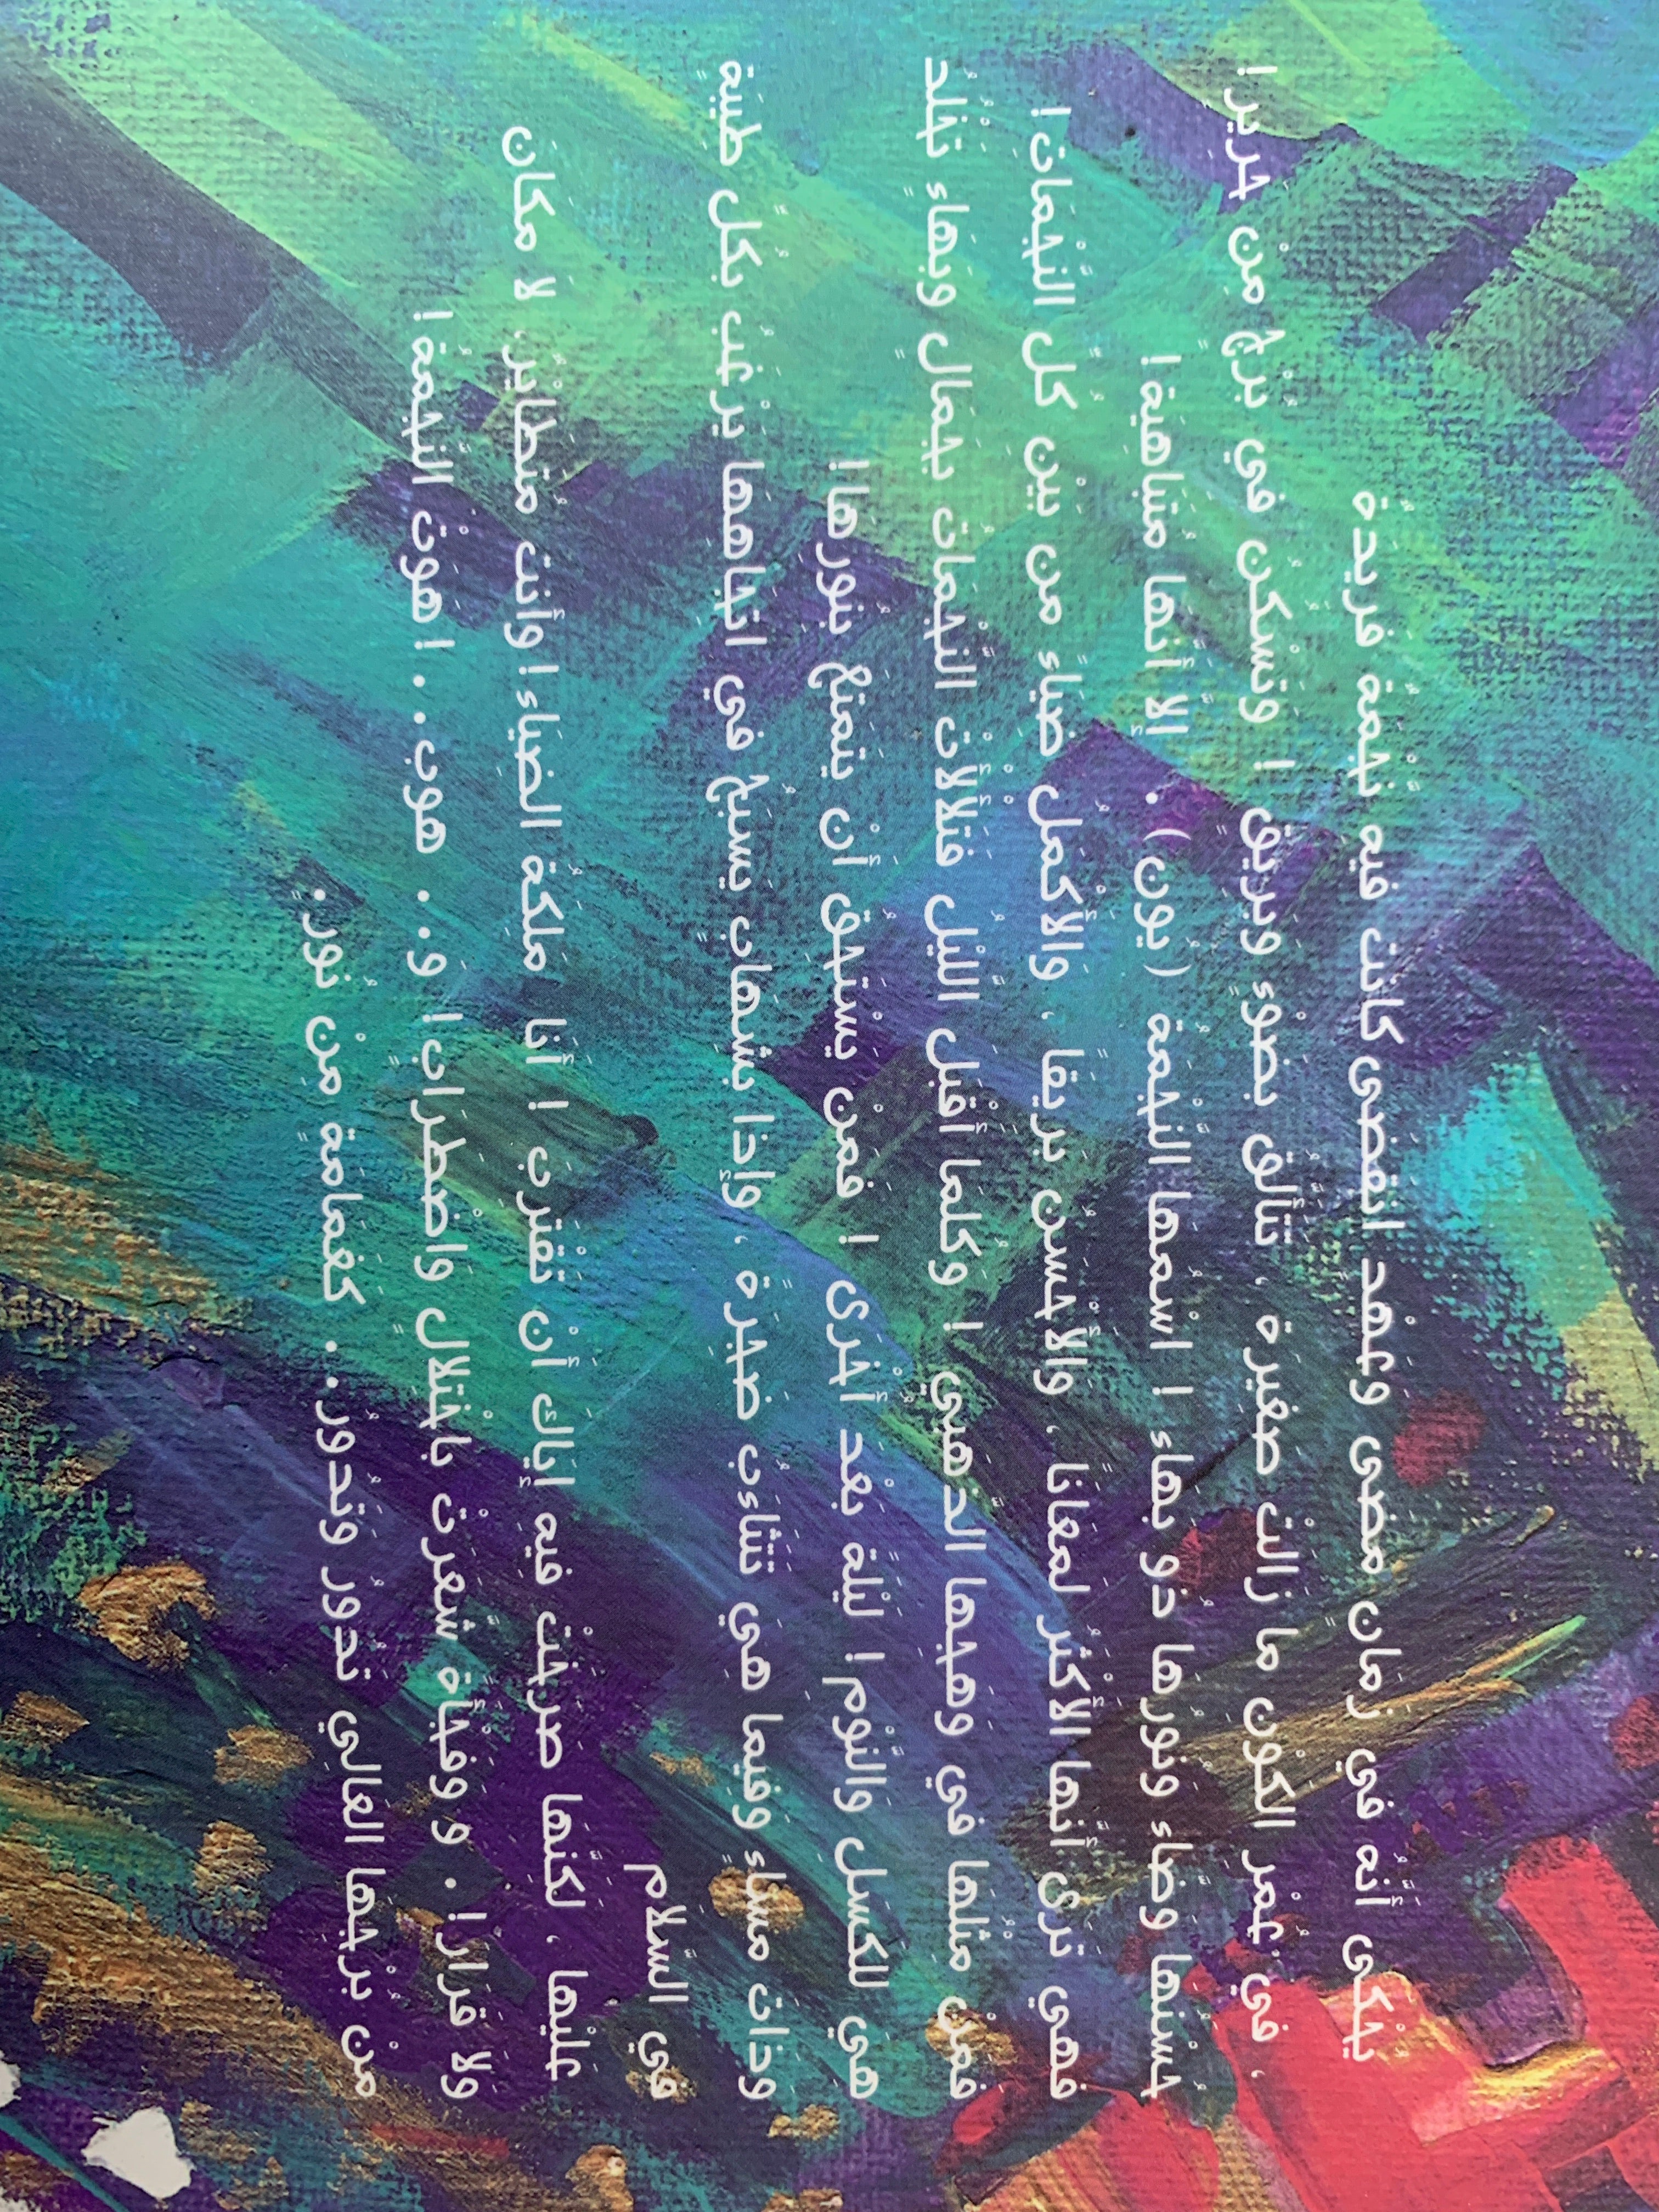 يُحْكى أَنَّه في زَمانٍ مَضى وعَهْدٍ انْقَضى كانَتْ فيه نَجْمَةٌ فَريدَةٌ
، في عُمْرِ الكَوْنِ ما زالَتْ صَغيرَة ، تَتَأَلَّقُ بِضَوْءٍ وبَريق ! وتَسْكُنُ في بُرْجٍ مِنْ حَرير!
حُسْنُها وَضّاء ونُورُها ذو بَهاء ! اسْمُها النَّجْمَة ( يون) . إلا أنَّها مُتَباهيَة!
فَهِي تَرى أنَّها الأكْثَرُ لَمَعانًا ، والأحْسَنُ بَريقًا ، والأكْمَلُ ضياءً من بَيْنِ كُلِّ النَّجْمات!
فَمَنْ مِثْلُها في وَهَجِها الذَّهَبيّ ! وكُلَّما أَقْبَلَ اللَّيْلُ فَتَلَألَأَت النَّجْماتُ بِجَمالٍ وبَهاءٍ تَبَلَّدَ
هي للكَسَلِ والنَّوْم! لَيْلَة بَعْدَ أُخْرى ! فَمَنْ يَسْتَحِقُّ أَنْ يَتَمَتَّعَ بِنورِها!
وذاتَ مَساءٍ وفيما هي تَتَثاءَب ضَجِرَة ، وإذا بِشِهابٍ يَسْبَحُ في اتِّجاهِها يَرْغَبُ بِكُلِّ طيبَة
في السَّلام
عَلَيْها ، لَكِنَّها صَرَخَتْ فيه إيّاكَ أنْ تَقْتَرِب ! أَنا مَلِكَةُ الضِّياء! وأَنْتَ مُتَطايِرٌ لا مَكانَ
ولا قَرار! . و وفَجْأَة شَعَرَتْ بِاخْتِلالٍ واضْطِراب! و.. هوب. . . ! هَوَتْ النَّجْمَة!
مِنْ بُرْجِها العالي تَدورُ وَتَدورُ. . كَغَمامَةٍ مِنْ نُورٍ.